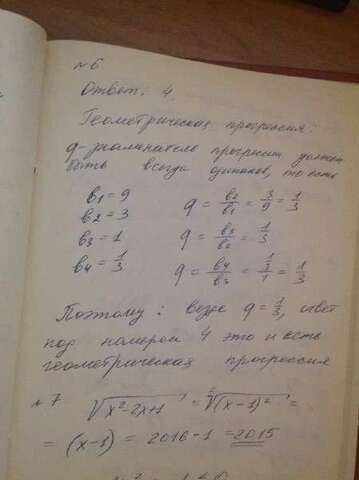 №6
Ответ: 4.
Геометрическая прогрессия:
q-знаменатель прогрессии должен
быть всегда одинаков, то есть
b₁ = 9 q = b₂/b₁ = 3/9 = 1/3
b₂ = 3
b₃ = 1 q = b₃/b₂ = 1/3
b₄ = 1/3 q = b₄/b₃ = 1/3/1 = 1/3
Поэтому: везде q = 1/3, ответ
под номером 4 это и есть
геометрическая прогрессия
№7 √x²-2x+1 = √(x-1)² =
= (x-1) = 2016-1 = 2015